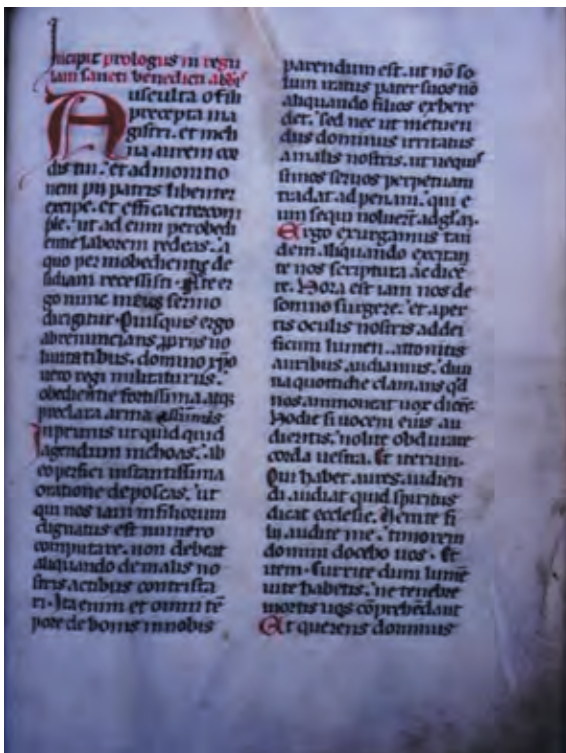 Incipit prologus in regu
lam sancti benedicti abbis
Ausculta o fili
precepta ma
gistri. et incli
na aurem cor
dis tui. et admonitio
nem pii patris libenter
excipe. et efficaciter com
ple. ut ad eum per obedi
entie laborem redeas. a
quo per inobedientie de
sidiam recesseras. Ad te er
go nunc meus sermo
dirigitur. Quisquis ergo
abrenuncians propriis uo
luntatibus. domino xpo
uero regi militaturus.
obedientie fortissima atqȝ
preclara arma assumis
Inprimis ut quid quid
agendum inchoas. ab
eo perfici instantissima
oratione deposcas. ut
qui nos iam in filiorum
dignatus est numero
computare. non debeat
aliquando de malis no
stris actibus contrista
ri. Ita enim et omni tē
pore de bonis in nobis
parendum est. ut nō so
lum iratus pater suos nō
aliquando filios exhere
det. sed nec ut metuen
dus dominus irritatus
a malis nostris. ut nequis
simos seruos perpetuam
tradat ad penam. qui e
um sequi noluerīt ad glām.
Ergo exurgamus tan
dem aliquando excitan
te nos scriptura ac dicē
te. Hora est iam nos de
somno surgere. et aper
tis oculis nostris ad dei
ficum lumen. attonitis
auribus audiamus. diui
na quottidie clamans qd
nos ammoneat uox dicēs.
Hodie si uocem eius au
dieritis. nolite obdurare
corda uestra. Et iterum.
Qui habet aures audien
di audiat quid spiritus
dicat ecclesie. Uenite fi
lii audite me. timorem
domini docebo uos. Et
item. Currite dum lumē
uite habetis. ne tenebre
mortis uos cōprehēdant
Et querens dominus